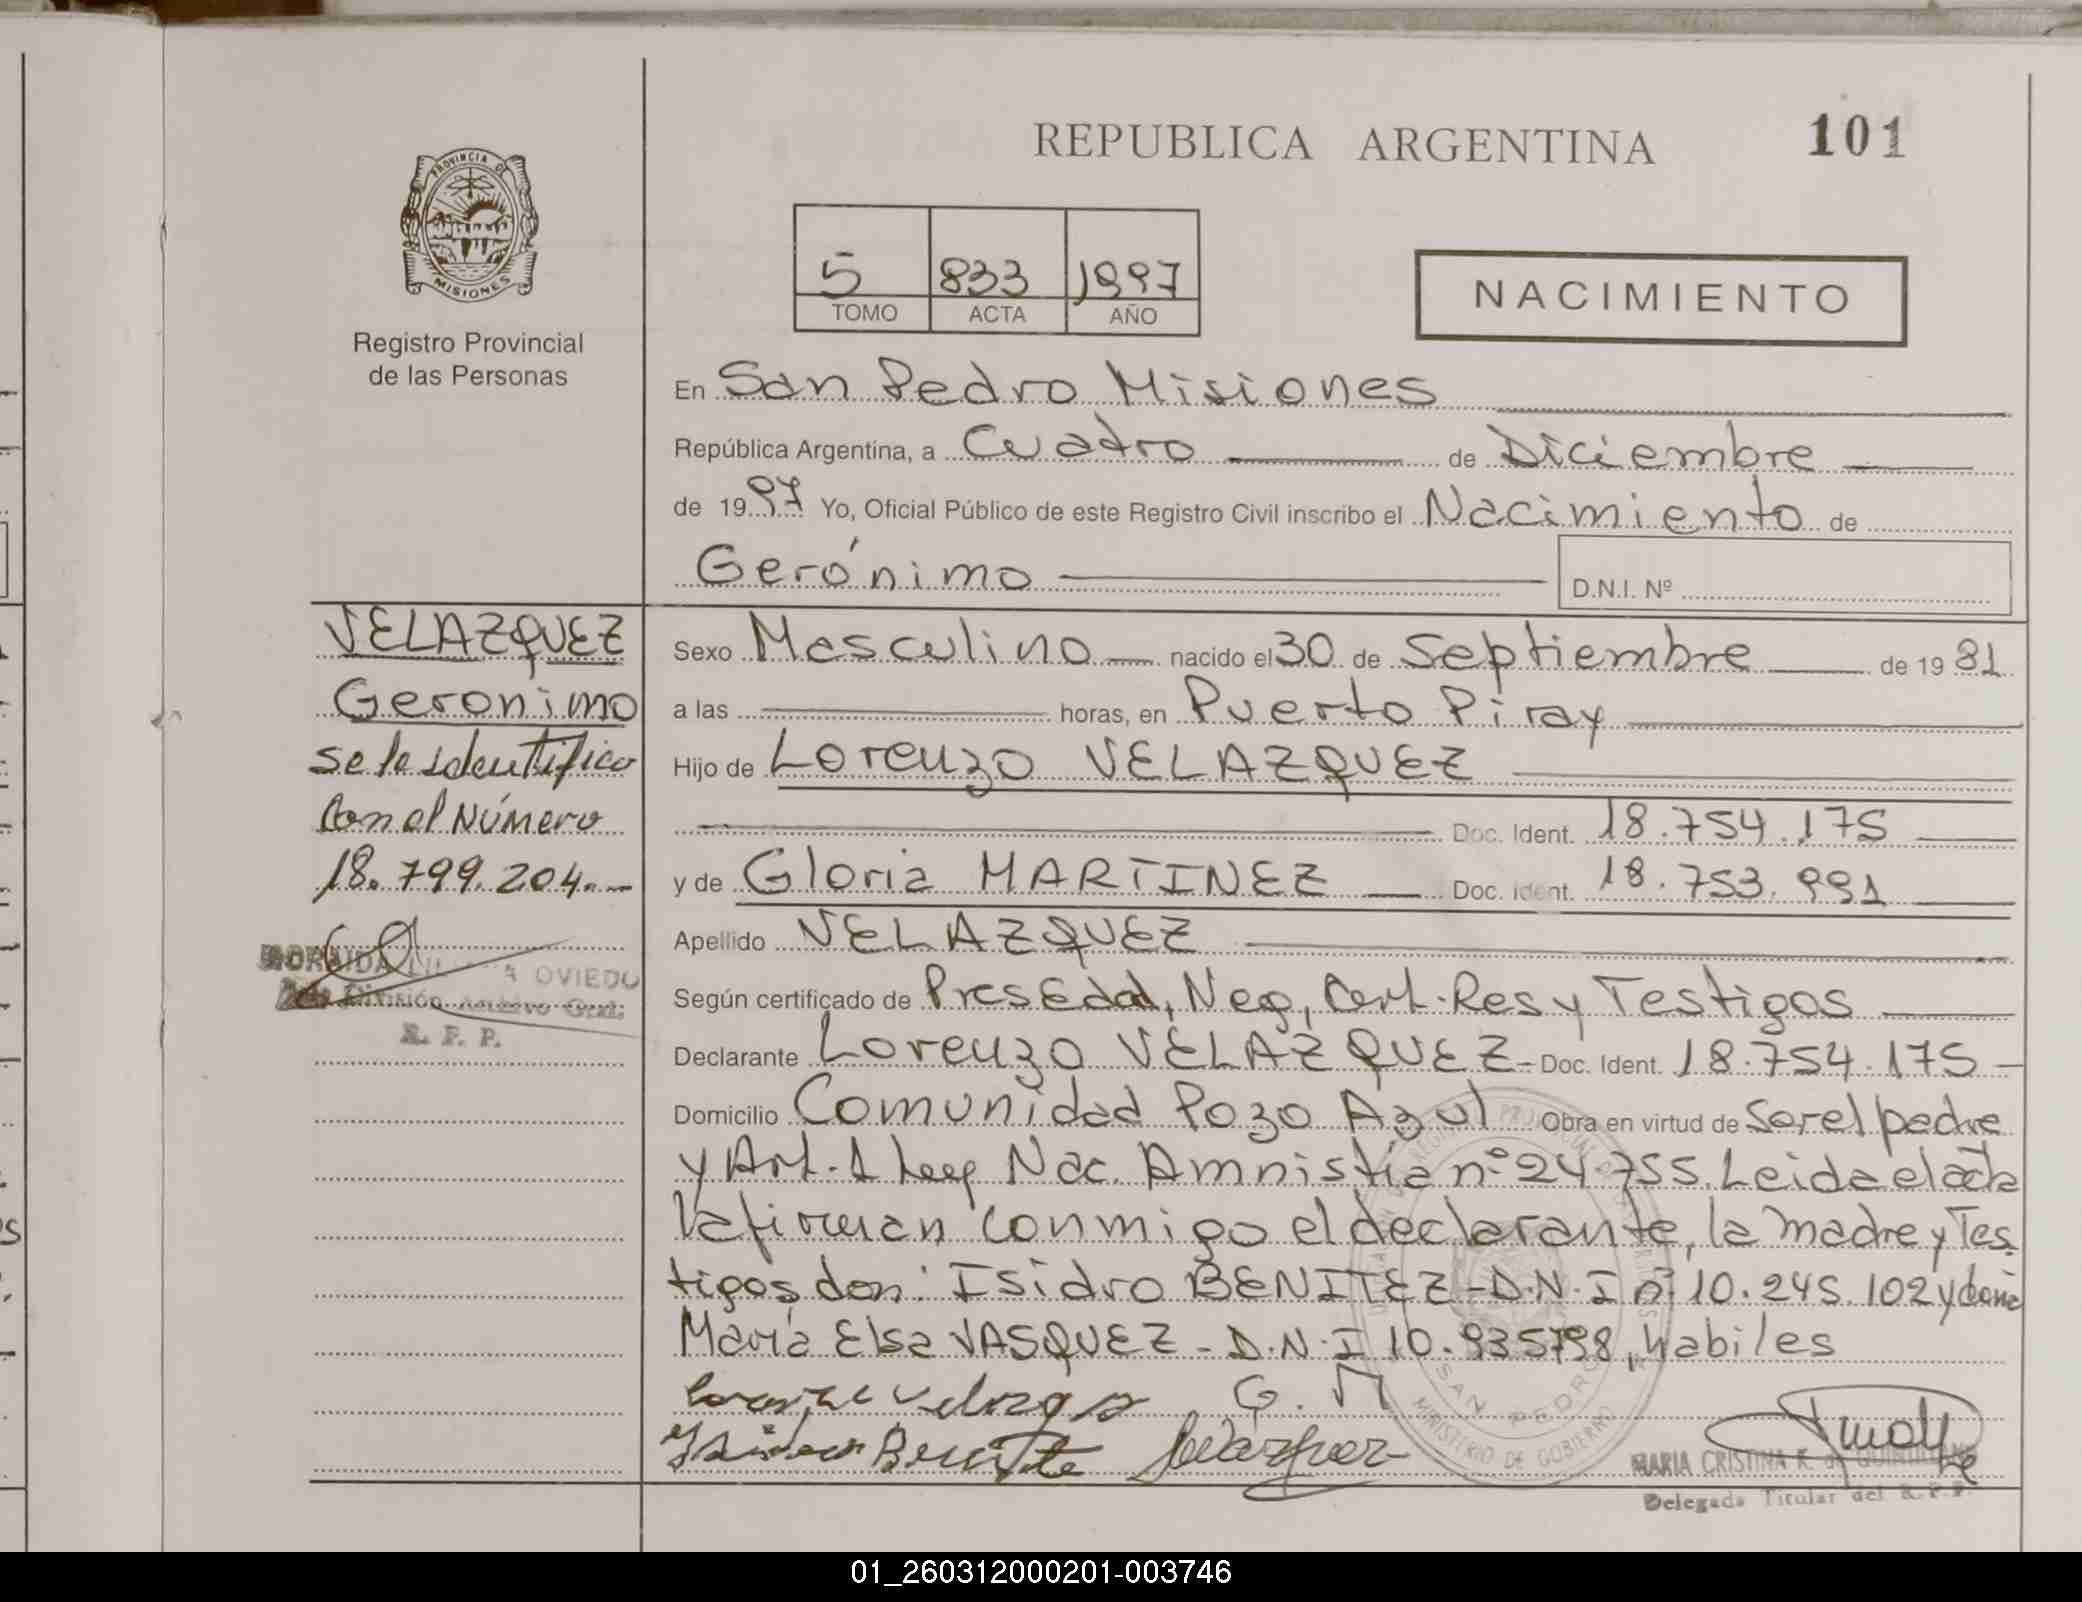 REPUBLICA ARGENTINA
101
PROVINCIA DE
MISIONES
Registro Provincial
de las Personas
5 833 1997
TOMO ACTA AÑO
NACIMIENTO
En San Pedro Misiones
República Argentina, a Cuatro de Diciembre
de 1997 Yo, Oficial Público de este Registro Civil inscribo el Nacimiento de
Gerónimo D.N.I. Nº
VELAZQUEZ
Geronimo
se le identifico
Con el Número
18.799.204.-
OVIEDO
División
R. P. P.
Sexo Masculino nacido el 30 de Septiembre de 1981
a las horas, en Puerto Piray
Hijo de Lorenzo VELAZQUEZ
Doc. Ident. 18.754.175
y de Gloria MARTINEZ Doc. Ident. 18.753.991
Apellido VELAZQUEZ
Según certificado de Pres Edad, Neg, Cert. Res y Testigos
Declarante Lorenzo VELAZQUEZ - Doc. Ident. 18.754.175 -
Domicilio Comunidad Pozo Azul Obra en virtud de Ser el padre
y Art. 1 Ley Nac. Amnistía nº 24.755. Leida el acta
la firman conmigo el declarante, la madre y Tes
tigos don: Isidro BENITEZ - D.N.I nº 10.245.102 y doña
María Elsa VASQUEZ - D.N.I 10.935798, habiles
G. M
SAN PEDRO
MINISTERIO DE GOBIERNO
MARIA CRISTINA K. de
Delegada Titular del R.P.P.
01_260312000201-003746